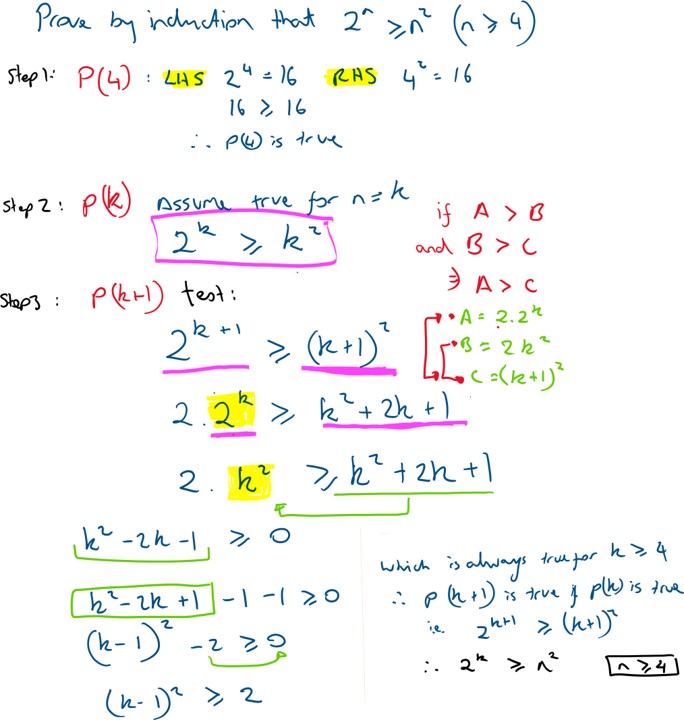 Prove by induction that 2ⁿ ⩾ n² (n ⩾ 4)
Step 1: P(4) : LHS 2⁴ = 16 RHS 4² = 16
16 ⩾ 16
∴ P(4) is true
Step 2: P(k) Assume true for n = k
2ᵏ ⩾ k²
if A > B
and B > C
∋ A > C
Step 3 : P(k+1) test:
2ᵏ⁺¹ ⩾ (k+1)²
• A = 2.2ᵏ
• B = 2k²
• C = (k+1)²
2 . 2ᵏ ⩾ k² + 2k + 1
2 . k² ⩾ k² + 2k + 1
k² - 2k - 1 ⩾ 0
k² - 2k + 1 - 1 - 1 ⩾ 0
(k-1)² - 2 ⩾ 0
(k-1)² ⩾ 2
which is always true for k ⩾ 4
∴ P(k+1) is true if P(k) is true
i.e. 2ᵏ⁺¹ ⩾ (k+1)²
∴ 2ᵏ ⩾ n² n ⩾ 4